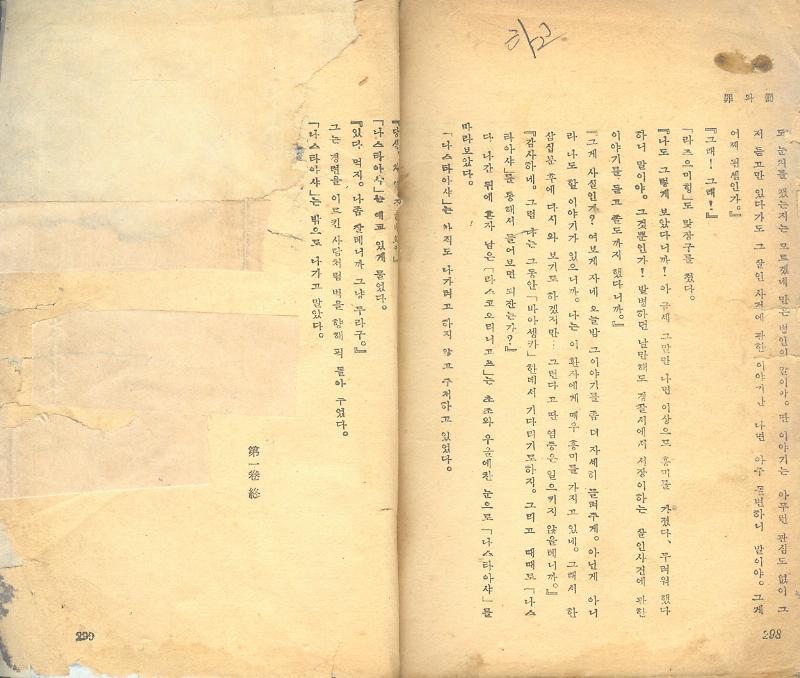 罪와罰
도 눈치를 챘는지는 모르겠네 만은 병인의 말이야。 딴 이야기는 아무런 관심도 없이 그
저 듣고만 있다가도 그 살인 사건에 관한 이야기만 나면 아주 돌변하더 말이야。 그게
어찌 된셈인가。』
『그래! 그래!』
「라즈으미힐」도 맞장구를 쳤다。
『나도 그렇게 보았다니까! 아 글쎄 그말만 나면 이상으로 흥미를 가졌다、무러워 했다
하더 말이야。 그것뿐인가! 발병하던 날만해도 경찰서에서 서장이하는 살인사건에 관한
이야기를 듣고 졸도까지 했다니까。』
『그게 사실인가? 여보게 자네 오늘밤 그이야기를 좀 더 자세히 들려주게。 아닌게 아니
라 나도 할 이야기가 있으니까。 나는 이 환자에게 매우 흥미를 가지고 있네。 그래서 한
삼십분 후에 다시 와 보기로 하겠지만… 그런다고 딴 염증은 일으키지 않을테니까。』
『감사하네。 그럼 나는 그동안 「바아셍카」한테서 기다리기로하지。 그리고 때때로 「나스
타아샤」를 통해서 들어보면 되잖는가?』
다 나간 뒤에 혼자 남은 「라스코오리니고프」는 초조와 우울에찬 눈으로 「나스타아샤」를
바라보았다。
「나스타아샤」는 아직도 나가려고 하지 않고 주저하고 있었다。
298
「나스타아샤」는 예고 있게 물었다。
『있다 먹지。 나좀 잘테니까 그냥 두라구。』
그는 경련을 이르킨 사람처럼 벽을 향해 픽 돌아 누었다。
「나스타아샤」는 밖으로 나가고 말았다。
第一卷 終
299